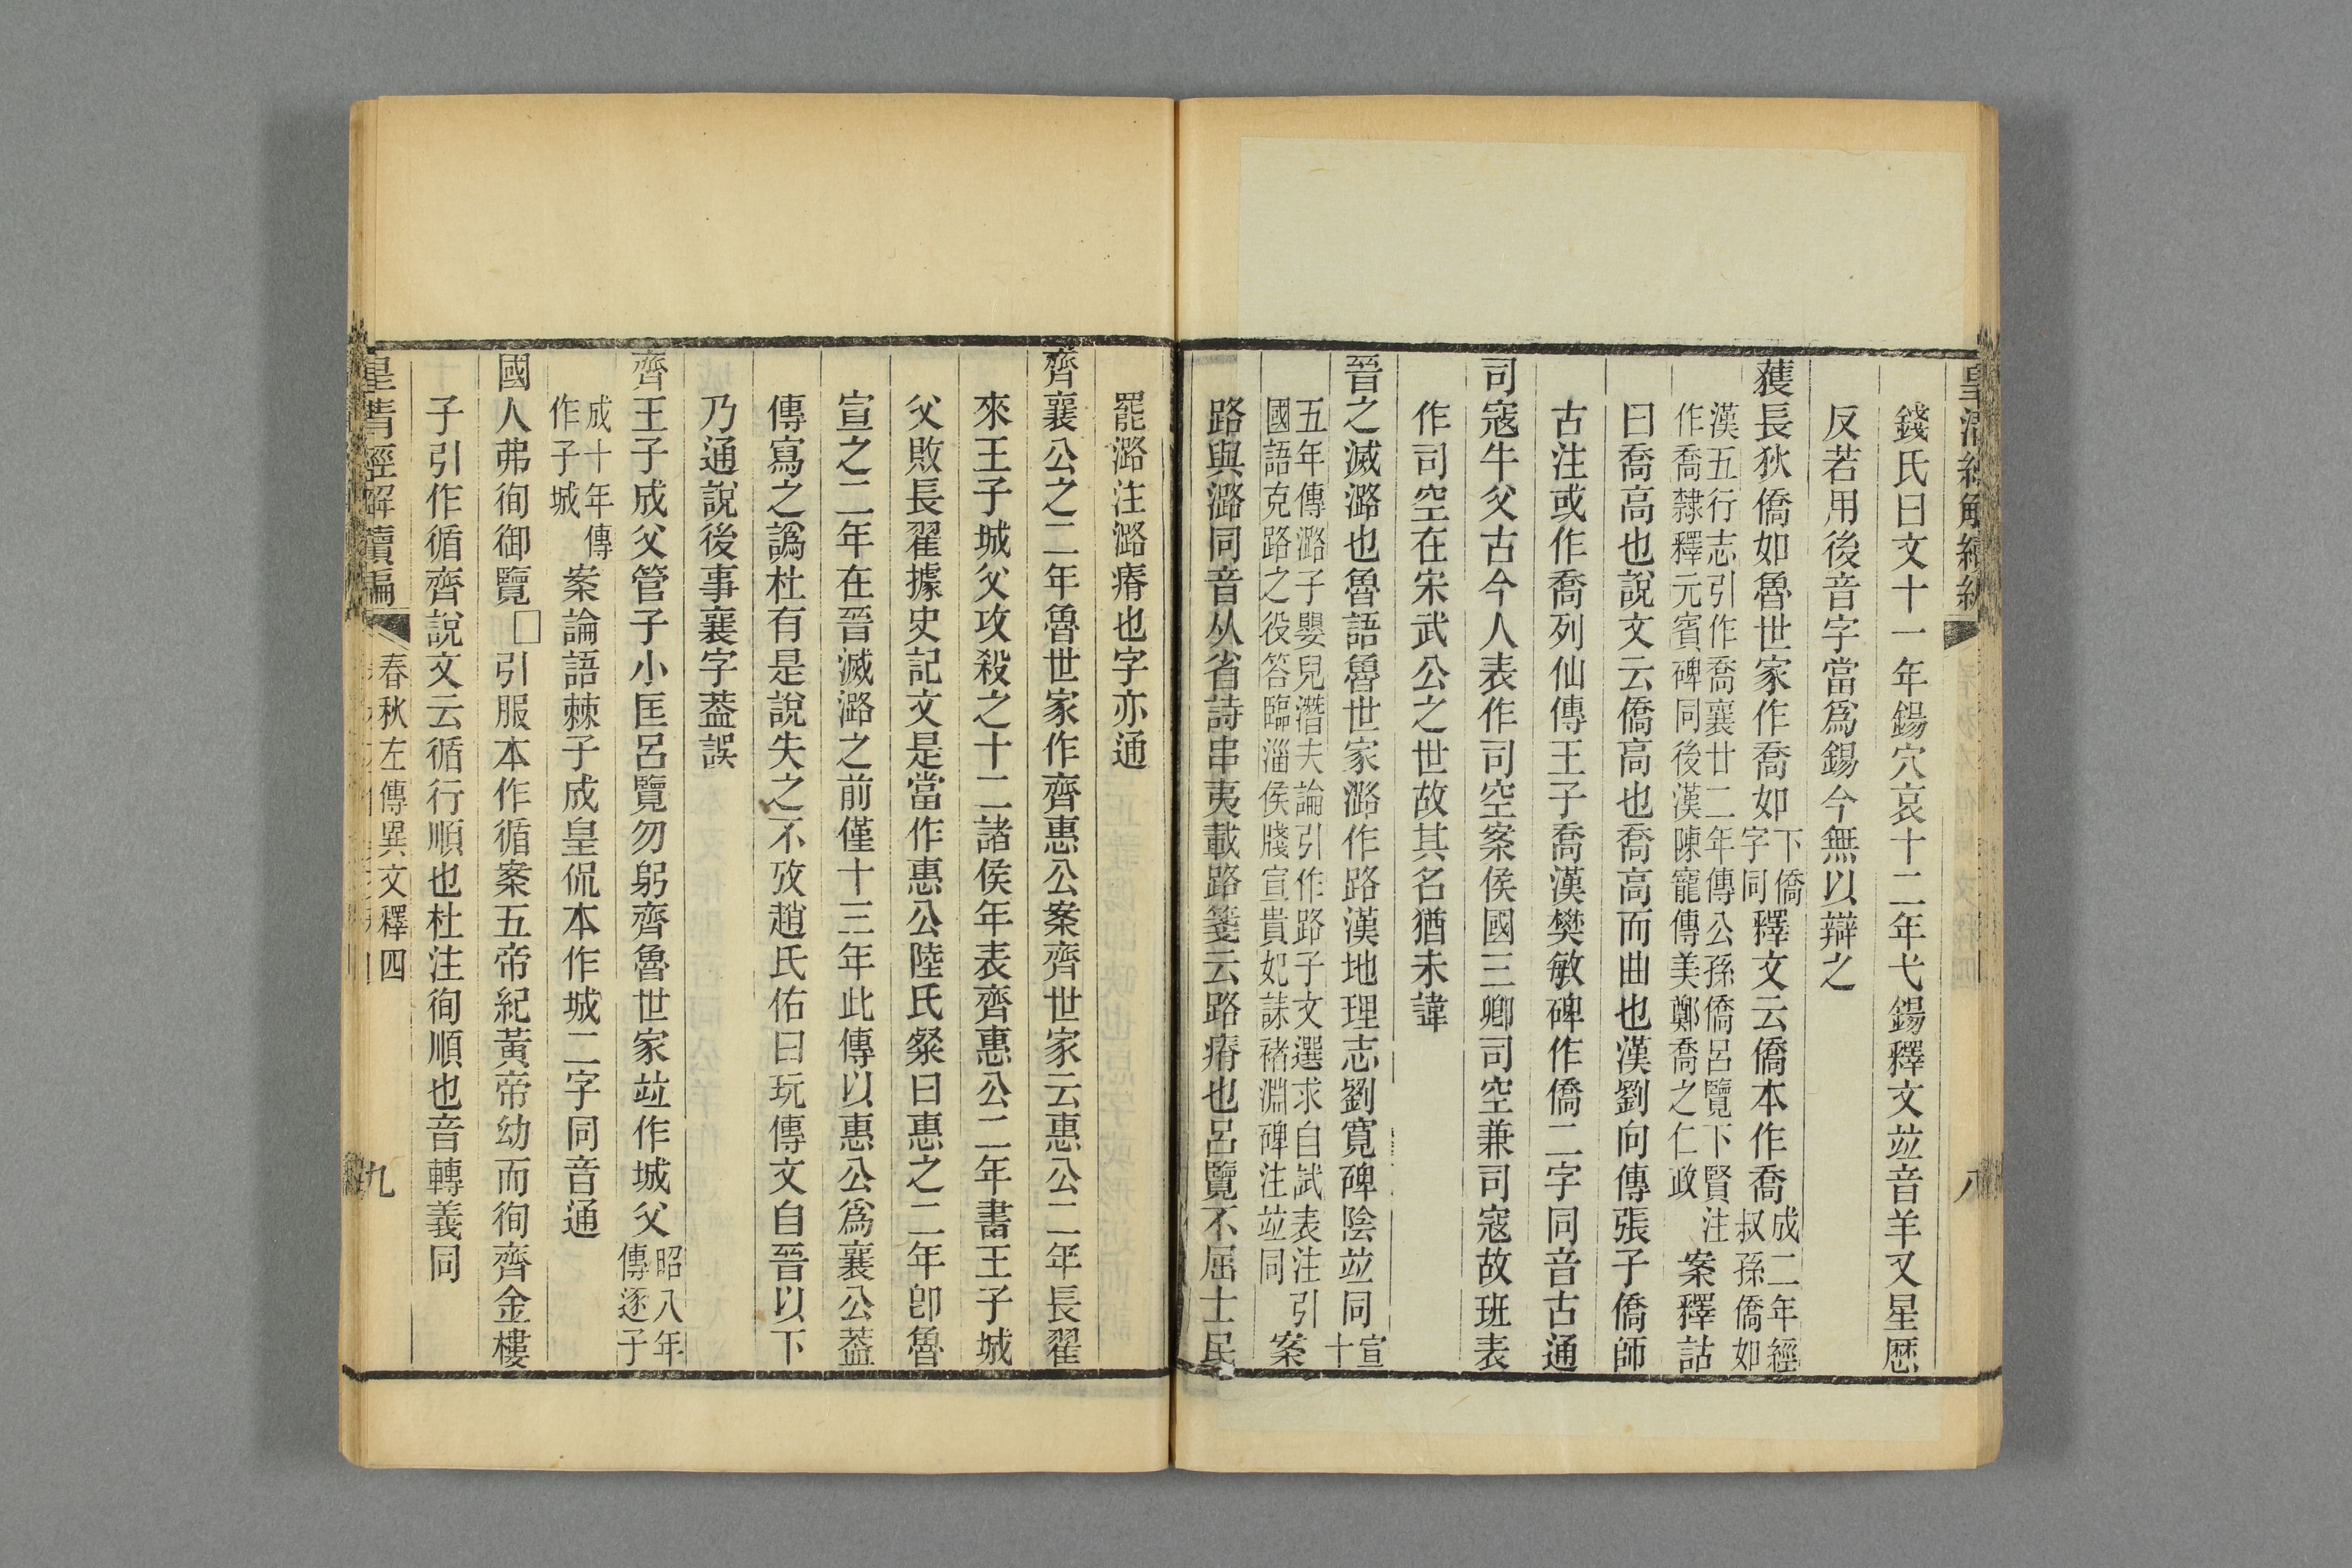 錢氏曰文十一年鍚穴哀十二年弋鍚釋文竝音羊又星歷
反若用後音字當爲錫今無以辯之
獲長狄僑如魯世家作喬如下僑字同釋文云僑本作喬成二年經叔孫僑如
漢五行志引作喬襄廿二年傳公孫僑呂覽下賢注作喬隸釋元賓碑同後漢陳寵傳美鄭喬之仁政案釋詁
曰喬高也說文云僑高也喬高而曲也漢劉向傳張子僑師
古注或作喬列仙傳王子喬漢樊敏碑作僑二字同音古通
司寇牛父古今人表作司空案侯國三卿司空兼司寇故班表
作司空在宋武公之世故其名猶未諱
晉之滅潞也魯語魯世家潞作路漢地理志劉寬碑陰竝同宣十
五年傳潞子嬰兒潛夫論引作路子文選求自試表注引國語克路之役答臨淄侯牋宣貴妃誄褚淵碑注竝同案
路與潞同音从省詩串夷載路箋云路瘠也呂覽不屈士民
罷潞注潞瘠也字亦通
齊襄公之二年魯世家作齊惠公案齊世家云惠公二年長翟
來王子城父攻殺之十二諸侯年表齊惠公二年書王子城
父敗長翟據史記文是當作惠公陸氏粲曰惠之二年卽魯
宣之二年在晉滅潞之前僅十三年此傳以惠公爲襄公葢
傳寫之譌杜有是說失之不攷趙氏佑曰玩傳文自晉以下
乃通說後事襄字葢誤
齊王子成父管子小匡呂覽勿躬齊魯世家竝作城父昭八年傳逐子
成十年傳作子城案論語棘子成皇侃本作城二字同音通
國人弗徇御覽□引服本作循案五帝紀黃帝幼而徇齊金樓
子引作循齊說文云循行順也杜注徇順也音轉義同
皇清經解續編 春秋左傳異文釋四 九